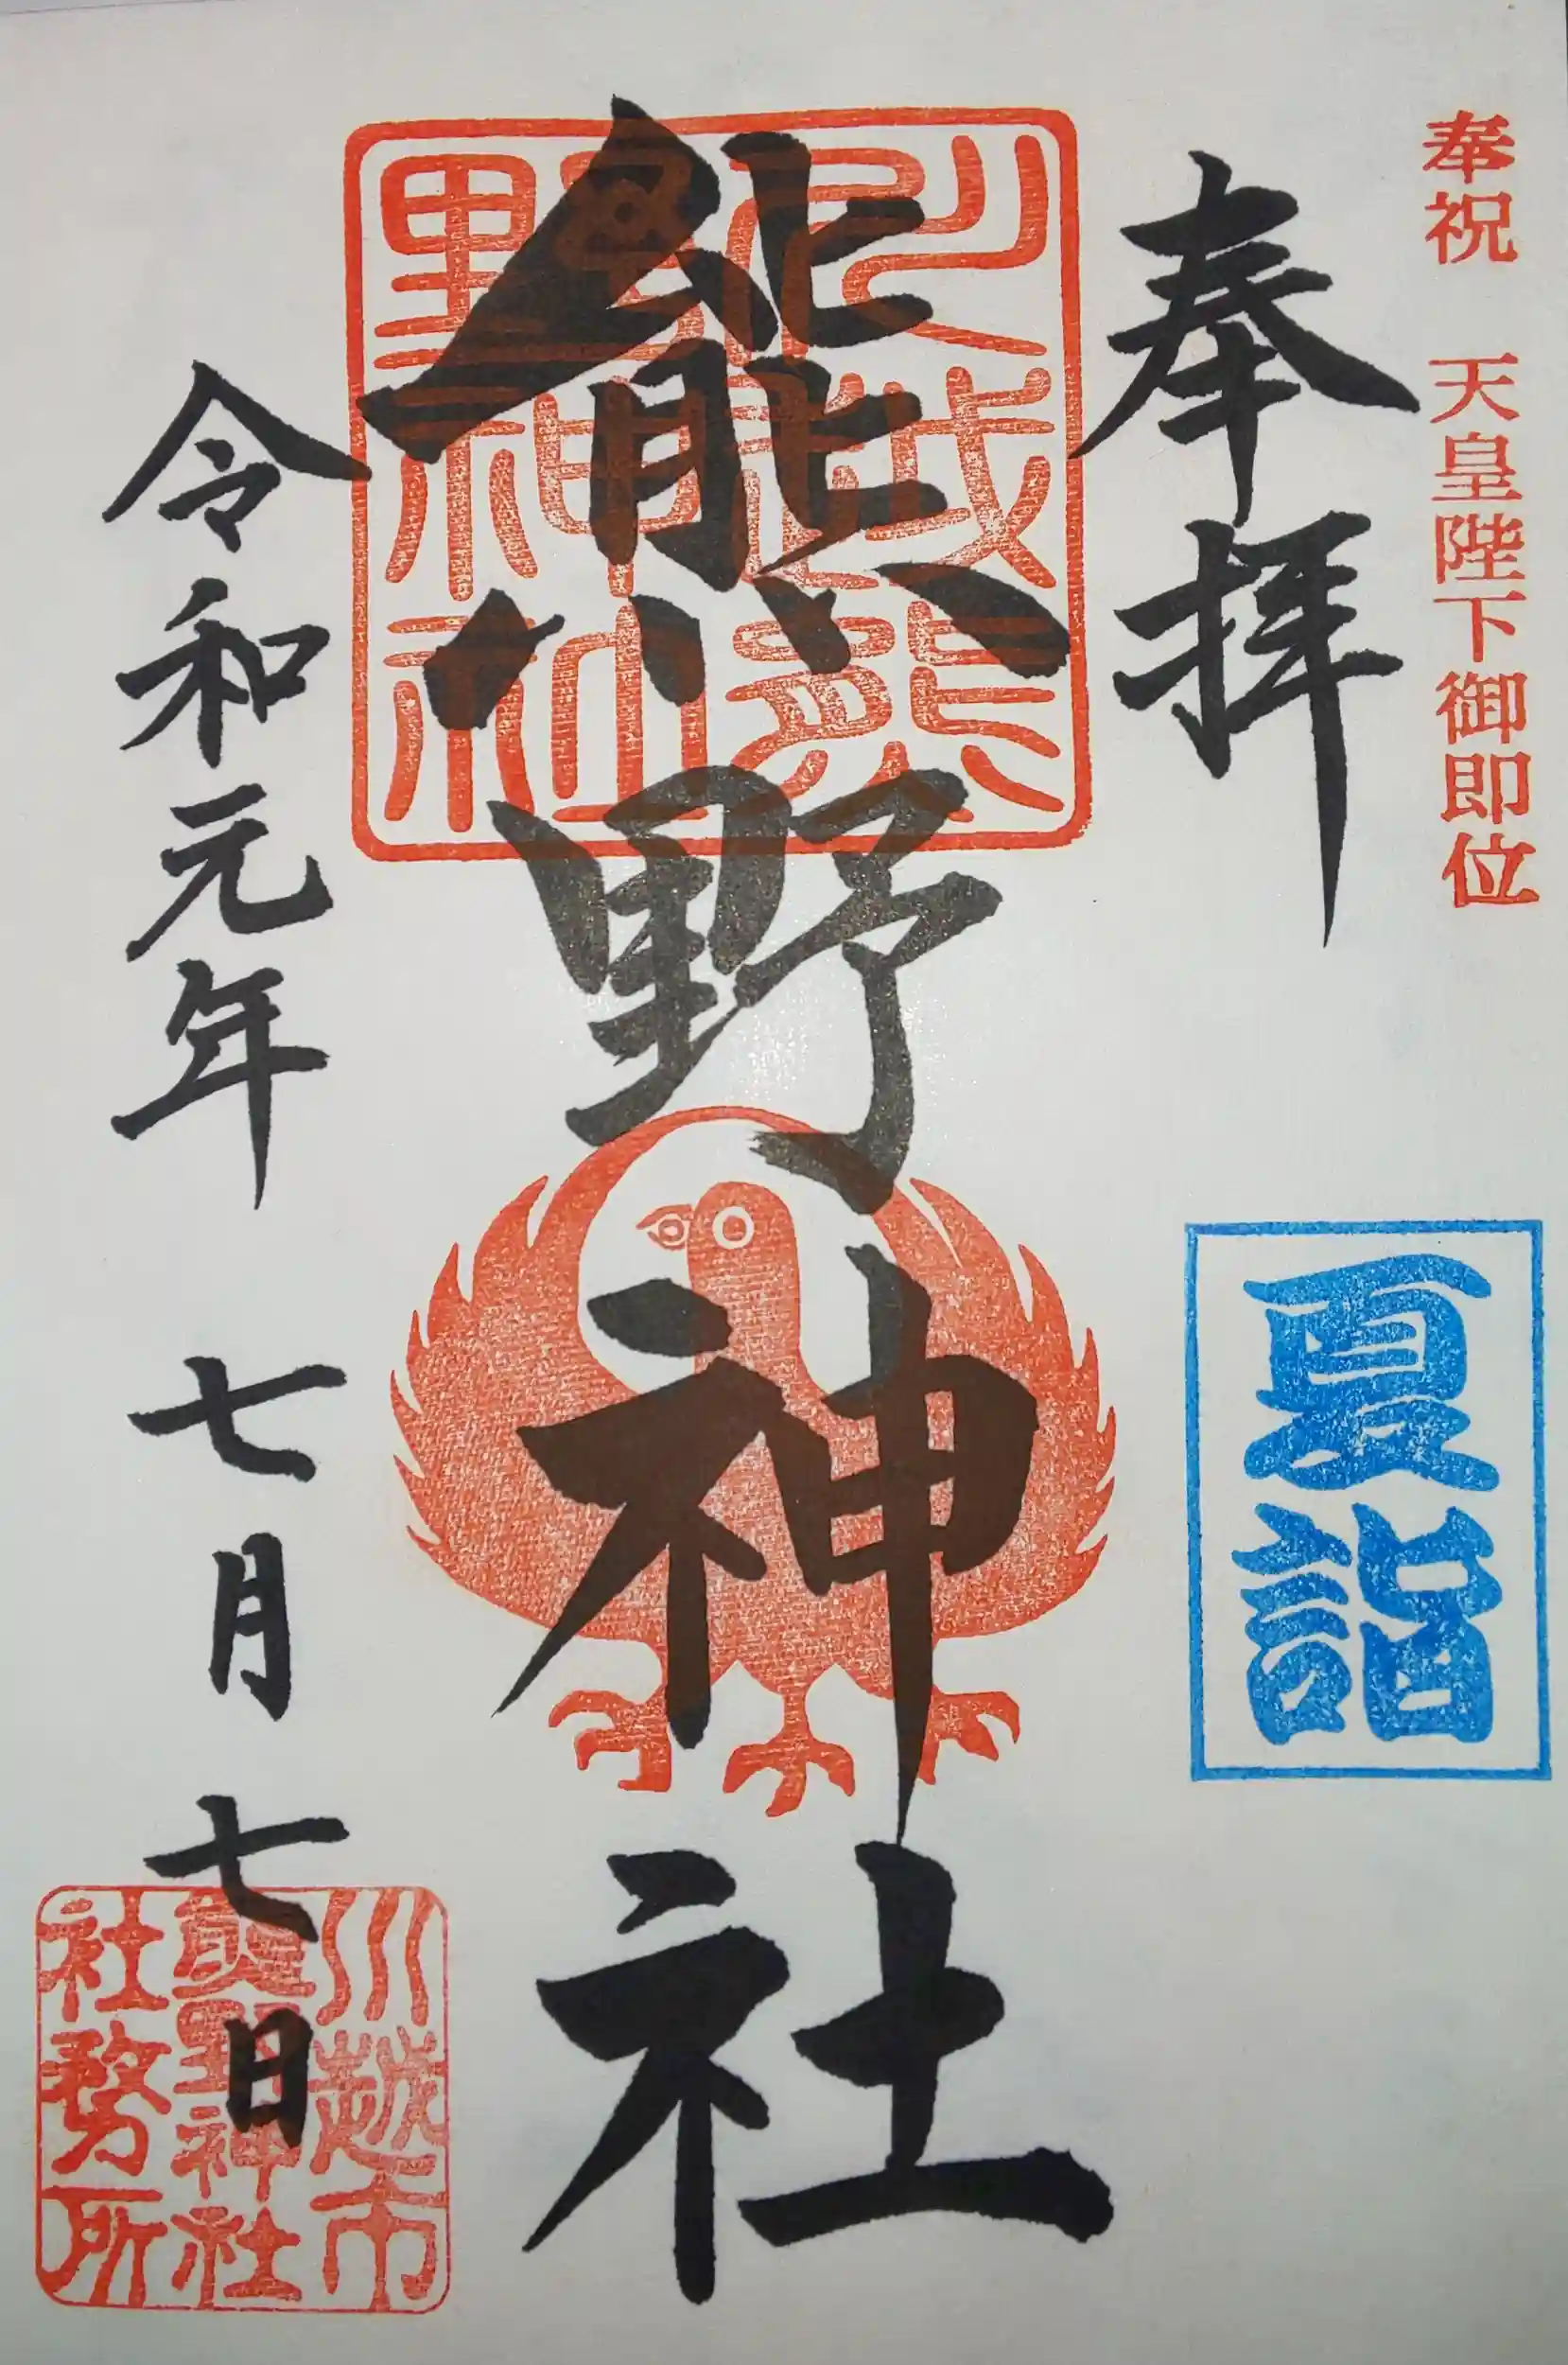 奉祝 天皇陛下御即位
奉拝
夏詣
川越熊野神社
熊野神社
令和元年 七月 七日
川越市
熊野神社
社務所